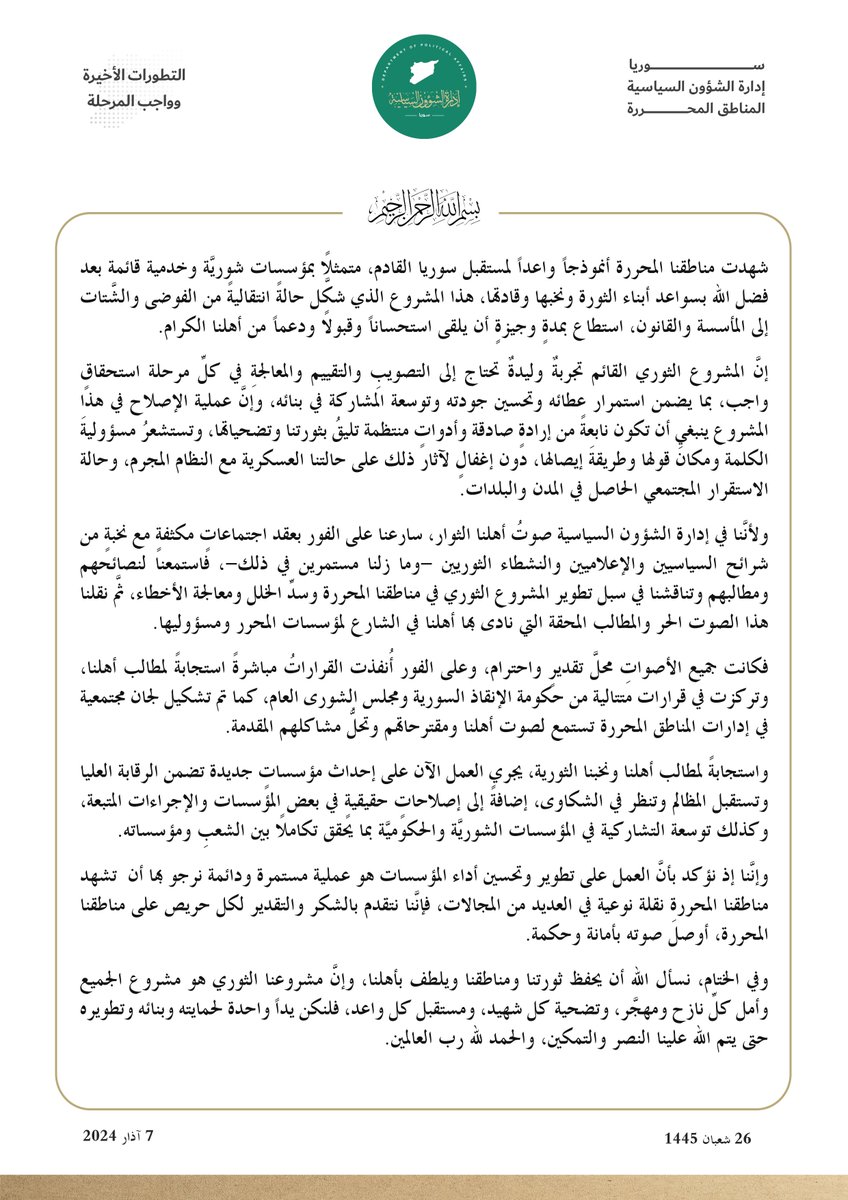 ســـــــــوريا
إدارة الشؤون السياسية
المناطق المحـــــــررة
DEPARTMENT OF POLITICAL AFFAIRS
إدارة الشؤون السياسية
سوريا
التطورات الأخيرة
وواجب المرحلة
بسم الله الرحمن الرحيم
شهدت مناطقنا المحررة أنموذجاً واعداً لمستقبل سوريا القادم، متمثلًا بمؤسسات شوريَّة وخدمية قائمة بعد
فضل الله بسواعد أبناء الثورة ونخبها وقادتها، هذا المشروع الذي شكَّل حالةً انتقاليةً من الفوضى والشَّتات
إلى المأسسة والقانون، استطاع بمدةٍ وجيزةٍ أن يلقى استحساناً وقبولًا ودعماً من أهلنا الكرام.
إنَّ المشروع الثوري القائم تجربةٌ وليدةٌ تحتاج إلى التصويبِ والتقييم والمعالجةِ في كلِّ مرحلة استحقاقٍ
واجب، بما يضمن استمرار عطائه وتحسين جودته وتوسعة المشاركة في بنائه، وإنَّ عملية الإصلاح في هذا
المشروع ينبغي أن تكون نابعةً من إرادةٍ صادقة وأدواتٍ منتظمة تليقُ بثورتنا وتضحياتها، وتستشعرُ مسؤوليةَ
الكلمة ومكانَ قولها وطريقةَ إيصالها، دون إغفالٍ لآثار ذلك على حالتنا العسكرية مع النظام المجرم، وحالة
الاستقرار المجتمعي الحاصل في المدن والبلدات.
ولأنَّنا في إدارة الشؤون السياسية صوتُ أهلنا الثوار، سارعنا على الفور بعقد اجتماعات مكثفة مع نخبةٍ من
شرائح السياسيين والإعلاميين والنشطاء الثوريين –وما زلنا مستمرين في ذلك–، فاستمعنا لنصائحهم
ومطالبهم وتناقشنا في سبل تطوير المشروع الثوري في مناطقنا المحررة وسدِّ الخلل ومعالجة الأخطاء، ثمَّ نقلنا
هذا الصوت الحر والمطالب المحقة التي نادى بها أهلنا في الشارع لمؤسسات المحرر ومسؤوليها.
فكانت جميع الأصواتِ محلَّ تقديرٍ واحترام، وعلى الفور أُنفذت القراراتُ مباشرةً استجابةً لمطالب أهلنا،
وتركزت في قرارات متتالية من حكومة الإنقاذ السورية ومجلس الشورى العام، كما تم تشكيل لجان مجتمعية
في إدارات المناطق المحررة تستمع لصوت أهلنا ومقترحاتهم وتحلُّ مشاكلهم المقدمة.
واستجابةً لمطالب أهلنا ونخبنا الثورية، يجري العمل الآن على إحداث مؤسسات جديدة تضمن الرقابة العليا
وتستقبل المظالم وتنظر في الشكاوى، إضافةً إلى إصلاحاتٍ حقيقيةٍ في بعض المؤسسات والإجراءات المتبعة،
وكذلك توسعة التشاركية في المؤسسات الشوريَّة والحكوميَّة بما يحقق تكاملًا بين الشعبِ ومؤسساته.
وإنَّنا إذ نؤكد بأنَّ العمل على تطوير وتحسين أداء المؤسسات هو عملية مستمرة ودائمة نرجو بها أن تشهد
مناطقنا المحررة نقلة نوعية في العديد من المجالات، فإنَّنا نتقدم بالشكر والتقدير لكل حريص على مناطقنا
المحررة، أوصلَ صوته بأمانة وحكمة.
وفي الختام، نسأل الله أن يحفظ ثورتنا ومناطقنا ويلطف بأهلنا، وإنَّ مشروعنا الثوري هو مشروع الجميع
وأمل كلِّ نازح ومهجَّر، وتضحية كل شهيد، ومستقبل كل واعد، فلنكن يداً واحدة لحمايته وبنائه وتطويره
حتى يتم الله علينا النصر والتمكين، والحمد لله رب العالمين.
26 شعبان 1445
7 آذار 2024